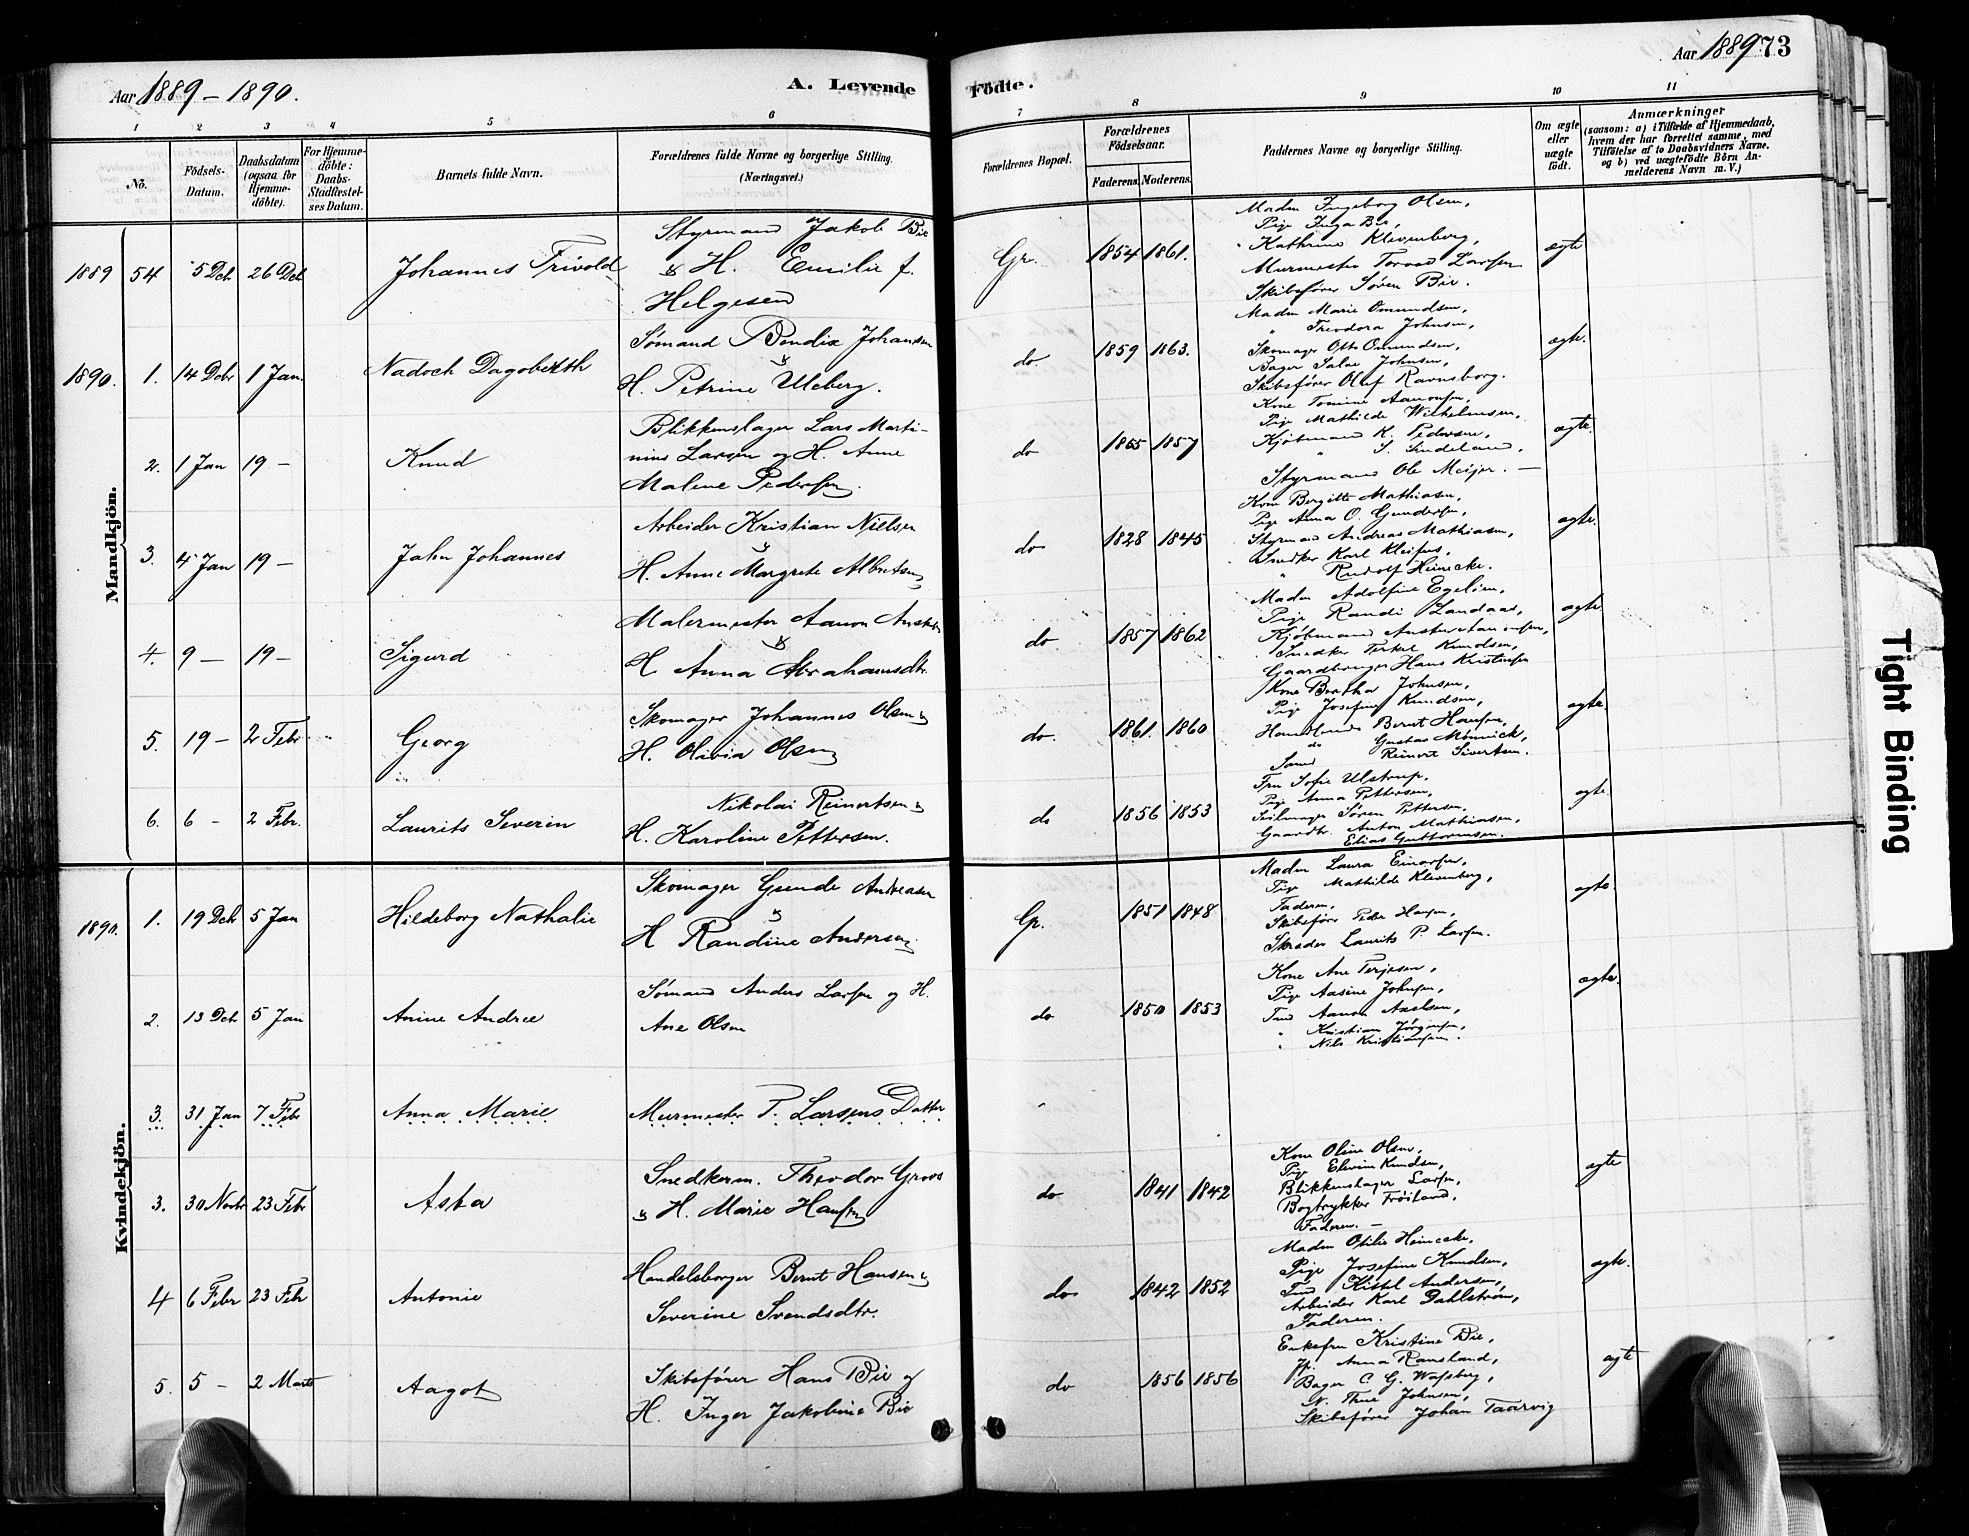 Aar 1889 - 1890.
A. Levende
Födte.
Aar 1889 73
1 2 3 4 5 6 7 8 9 10 11
No.
Födsels-Datum.
Daabsdatum (ogsaa for Hjemme-döbte).
For Hjemme-döbte: Daabs-Stadfæstel-ses Datum.
Barnets fulde Navn.
Forældrenes fulde Navne og borgerlige Stilling.
(Næringsvei.)
Forældrenes Bopæl.
Forældrenes Födselsaar.
Faderens. Moderens.
Faddernes Navne og borgerlige Stilling.
Om ægte eller uægte födt.
Anmærkninger
(saasom: a) i Tilfælde af Hjemmedaab, hvem der har forrettet samme, med Tilföielse af to Daabsvidners Navne, og b) ved uægtefödte Börn An-melderens Navn m. V.)
Mandkjön.
1889 54 5 Deb 26 Deb
Johannes Trivold
Styrmand Jakob Bie
& H. Emilie f.
Helgesen
Gr. 1854 1861.
Maden Ingeborg Olsen,
Pige Inga Bie,
" Kathrine Klevenberg,
Murmester Torvald Larsen
Skibsfører Søren Bie.
ægte
1890. 1. 14 Debr 1 Jan.
Nadock Dagoberth
Sømand Bendix Johansen
&
H. Petrine Uleberg.
do. 1859 1863.
Maden Marie Omundsen,
" Theodora Johnsen,
Skomager Otto Omundsen,
Bager Salve Johnsen,
Skibsfører Oluf Ravnsborg.
ægte.
2. 1 Jan 19 -
Knud
Blikkenslager Lars Marti-
nius Larsen og H. Anne
Malene Pedersen
do 1865 1857
Kone Tomine Aanonsen,
Pige Mathilde Wilhelmsen,
Kjøbmand K. Pedersen,
" S. Sindeland,
Styrmand Ole Meijer. -
ægte.
3. 4 Jan 19 -
Jahn Johannes
Arbeider Kristian Nielsen
&
H. Anne Margrete Albretsen
do 1828 1845
Kone Bergitte Mathiasen,
Pige Anna O. Gundersen,
Styrmand Andreas Mathiasen,
Snedker Karl Kleifus,
" Rudolf Heinecke.
ægte.
4. 9 - 19 -
Sigurd
Malermester Aanon
&
H. Anna Abrahamsdtr.
do 1857 1862
Maden Adolfine Egelien,
Pige Randi Landaas,
Kjøbmand Aanonsen,
Snedker Terkel Knudsen,
Gaardbruger Hans Kristensen
ægte
5. 19 - 2 Febr
Georg
Skomager Johannes Olsen &
H. Olivia Olsen
do. 1861. 1860
Kone Bertha Johnsen,
Pige Josefine Knudsen,
Bernt Hansen,
do Gustav Mønnick,
Sømd Reinert Sivertsen.
ægte.
6. 6 - 2 Febr.
Laurits Severin
Nikolai Reinertsen &
H. Karoline Pettersen.
do 1856 1853
Fru Sofie Ulstrup,
Pige Anna Pettersen,
Seilmager Søren Pettersen,
Gaardbr. Anton Mathiasen,
Elias Guttormsen.
ægte.
Kvindekjön.
1890. 1. 19 Deb 5 Jan
Hildeborg Nathalie
Skomager Gunde Andreasen
&
H Randine Andersen
Gr. 1851 1848
Maden Laura Einarsen,
Pige Mathilde Klevenberg,
Faderen,
Skibsfører Peder Hansen,
Skræder Laurits P. Larsen.
ægte.
2. 13 Deb 5 Jan
Anine Andrea
Sømand Anders Larsen og H.
Ane Olsen
do 1850 1853
Kone Ane Terjesen,
Pige Aasine Johnsen,
Tmd Aanon Axelsen,
" Kristian Jørgensen,
" Nils Kristiansen.
ægte.
3. 31 Jan 7 Febr
Anna Marie
Murmester T. Larsens Datter
3. 30 Novbr 23 Febr
Asta
Snedkerm. Theodor Groos
& H. Marie Hansen
do 1841 1842
Kone Oline Olsen,
Pige Elevine Knudsen,
Blikkenslager Larsen,
Bogtrykker Frøiland,
Faderen. -
ægte
4 6 Febr 23 Febr
Antonie
Handelsborger Bernt Hansen &
Severine Svendsdtr.
do 1842 1852
Maden Otilie Heinecke,
Pige Josefine Knudsen,
Tmd Kittel Andersen,
Arbeider Karl Dahlstrøm,
Faderen.
ægte.
5. 5 - 2 Marts
Aagot
Skibsfører Hans Bie og
H. Inger Jakobine Bie
do 1856 1856
Enkefru Kristine Bie,
Jfr. Anna Ramsland,
Bager C. G. Wafsberg,
N. Thue Johnsen,
Skibsfører Johan Taarvig
ægte
Tight Binding